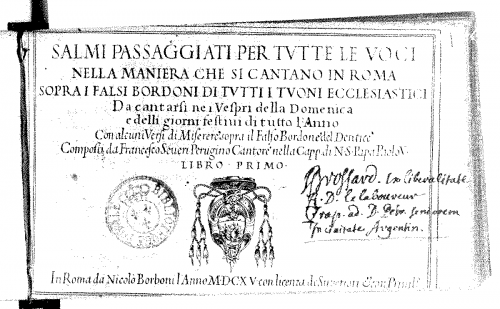 SALMI PASSAGGIATI PER TVTTE LE VOCI
NELLA MANIERA CHE SI CANTANO IN ROMA
SOPRA I FALSI BORDONI DI TVTTI I TVONI ECCLESIASTICI
Da cantarsi nei Vespri della Domenica
e delli giorni festivi di tutto l'Anno
Con alcuni Versi di Miserere sopra il Falso Bordone del Dentice
Composti da Francesco Severi Perugino Cantore nella Capp. di N.S. Papa Paolo V.
LIBRO · PRIMO ·
Brossard. In liberalitate
D. le
ad. D.
Argentin.
In Roma da Nicolò Borboni l'Anno M·DCXV con licenza di Superiori